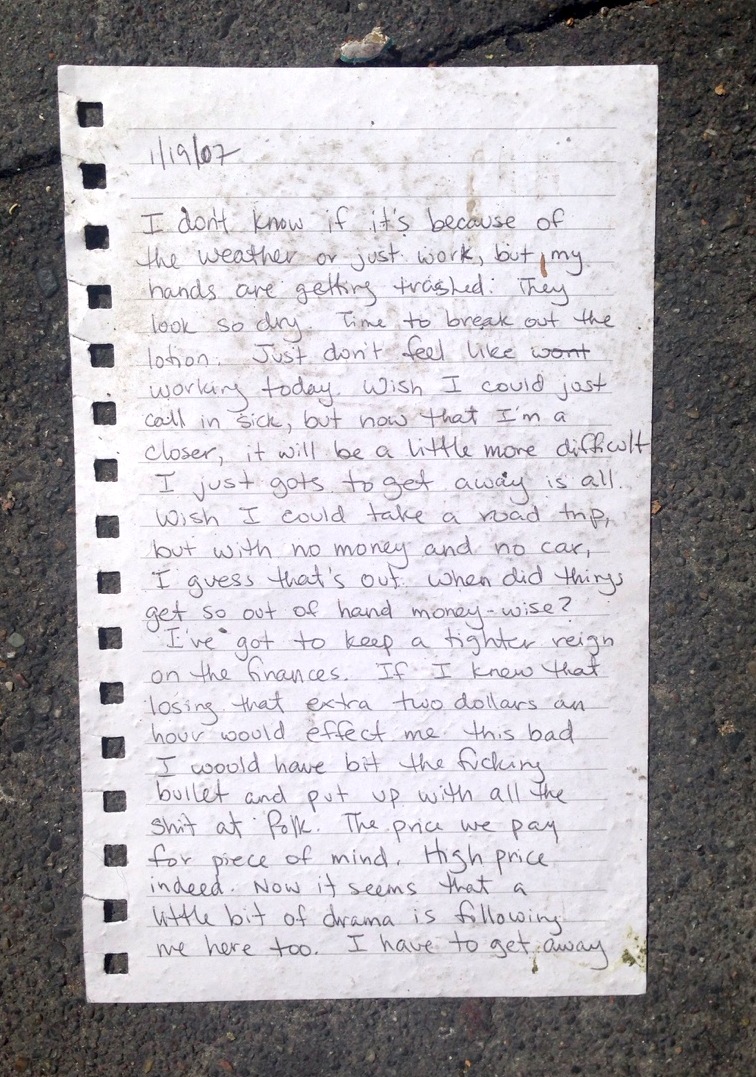 1/19/07
I don't know if it's because of
the weather or just work, but my
hands are getting trashed. They
look so dry. Time to break out the
lotion. Just don't feel like wont
working today. Wish I could just
call in sick, but now that I'm a
closer, it will be a little more difficult
I just gots to get away is all.
Wish I could take a road trip,
but with no money and no car,
I guess that's out. When did things
get so out of hand money-wise?
I've got to keep a tighter reign
on the finances. If I knew that
losing that extra two dollars an
hour would effect me this bad
I would have bit the fucking
bullet and put up with all the
shit at Polk. The price we pay
for piece of mind. High price
indeed. Now it seems that a
little bit of drama is following
me here too. I have to get away